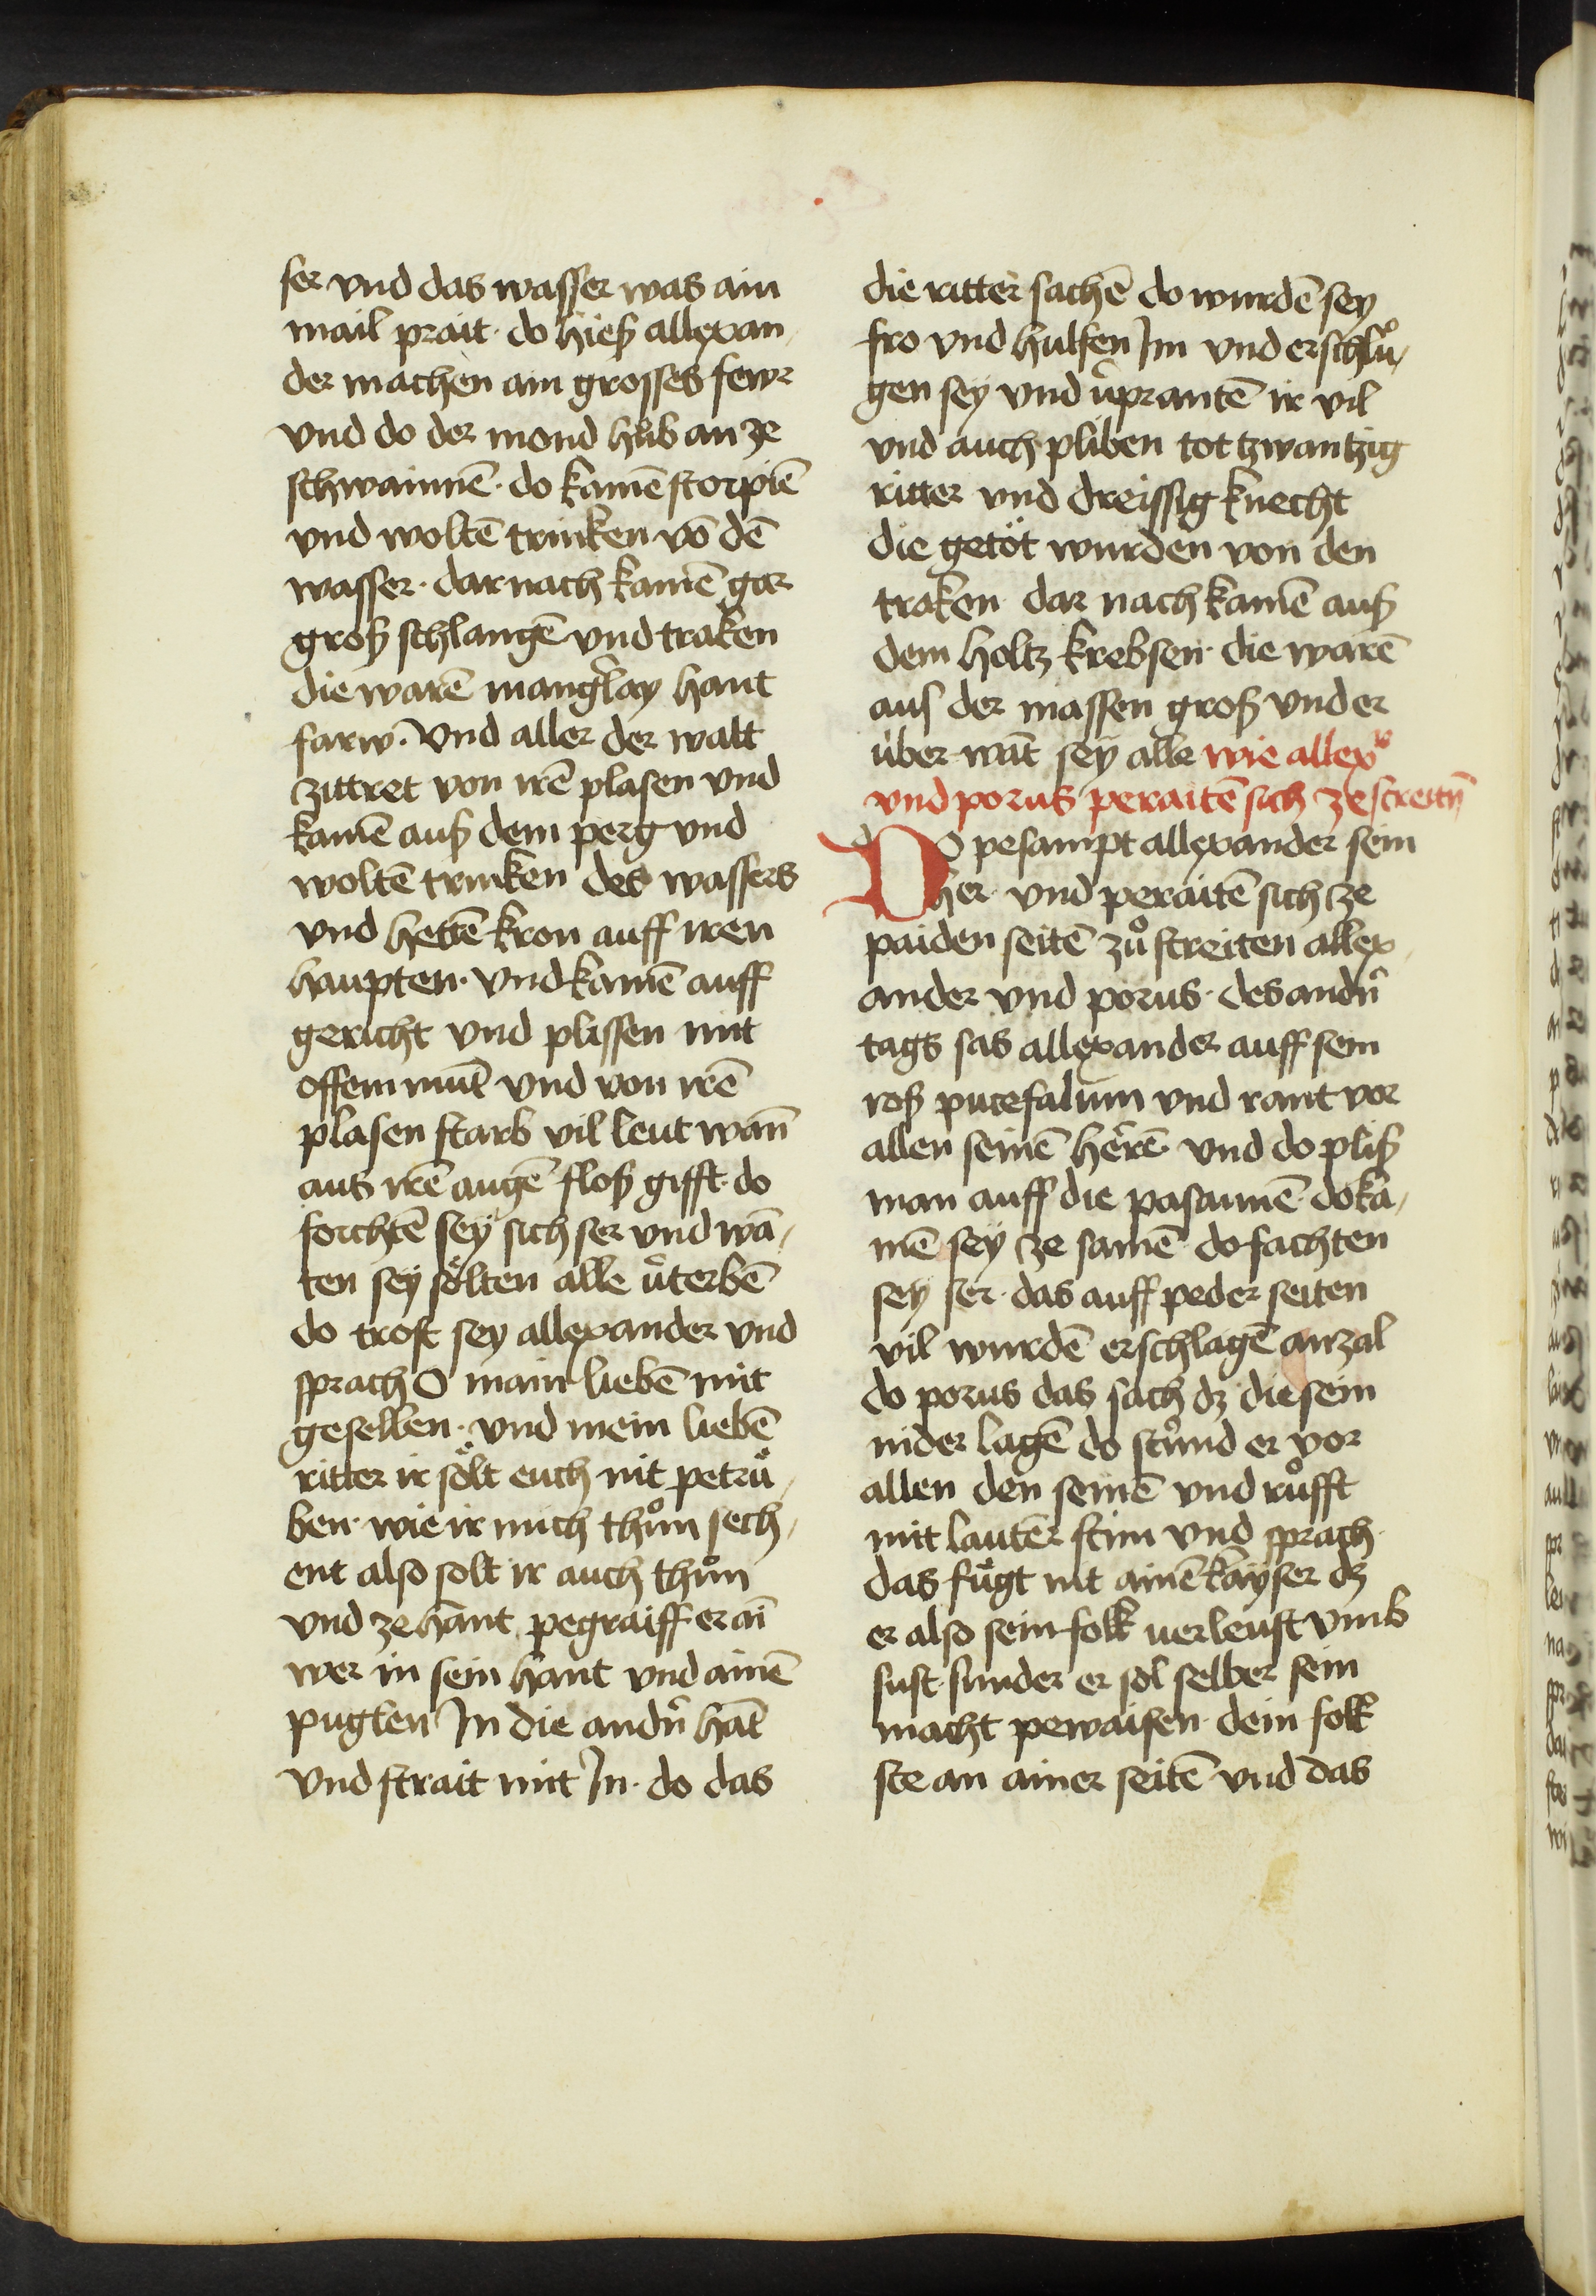 ser vnd das wasser was ain
mail prait · do hieß allexan
der machen ain grosses fewr
vnd do der mond hůb an ze
schwainnē · do kamē storpiē
vnd woltē trinken vō dē
wasser · dar nach kamē gar
groß schlangē vnd traken
die warē mangˀlay haut
farw · Vnd aller der walt
zittret von irē plasen vnd
kamē auß dem perg vnd
woltē trinken des wassers
vnd hettē kron auff iren
haupten · vnd kamē auff
gericht vnd plissen mit
offem mūt vnd von irē
plasen starb vil leut wan̄
aus irē augē floß gifft · do
forchtē sey sich ser vnd wā
ten sey sölten alle v̓terbē
do trost sey allexander vnd
sprach O main liebē mit
gesellen · vnd mein liebē
ritter ir sölt euch nit petrü
ben · wie ir mich thůn sech
ent also solt ir auch thůn
vnd ze hant pegraiff er ai
wer in sein hant vnd ainē
puglen In die andn̓ hāt
vnd strait mit In · do das
die ritter sachē do wurdē sey
fro vnd hulfen Im vnd erschlů
gen sey vnd v̓prantē ir vil
vnd auch pliben tot tzwantzig
ritter vnd dreissig knecht
die getöt wurden von den
traken dar nach kamē auß
dem holtz krebsen · die warē
aus der massen groß vnd er
über wāt sey alle wie allexr
vnd porus peraitē sich ze streitn̄
Do pesampt allexander sein
her · vnd peraitē sich ze
paiden seitē zů streiten allex
ander vnd porus · des andn̓
tags sas allexander auff sein
roß pucefalum vnd rant vor
allen seinē herrē · vnd do pliß
man auff die pasaunē · do ka
mē sey ze samē do fachten
sey ser · das auff peder seiten
vil wurdē erschlagē an zal
do porus das sach dz die sein
nider lagē do stůnd er vor
allen den seinē vnd růfft
mit lauter stim vnd sprach
das fügt nit ainē kayser dz
er also sein folk verleust vmb
sust · sunder er sol selber sein
macht pewaisen · dein folk
ste an ainer seitē vnd das